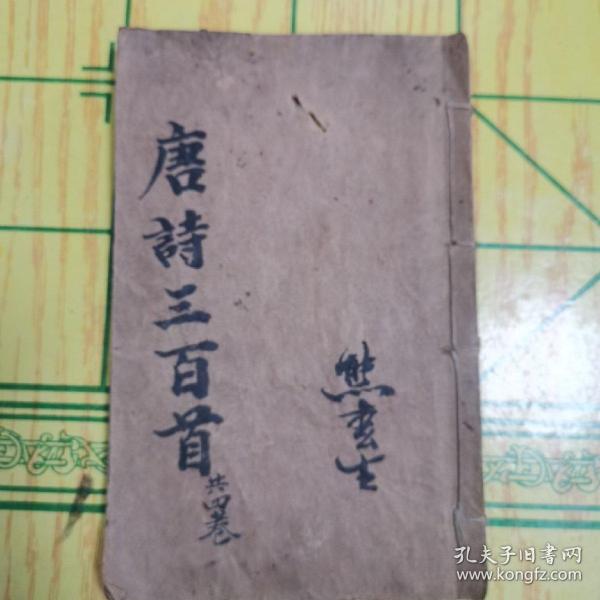 唐詩三百首
共四卷
熊玄生
孔夫子旧書网
www.kongfz.com